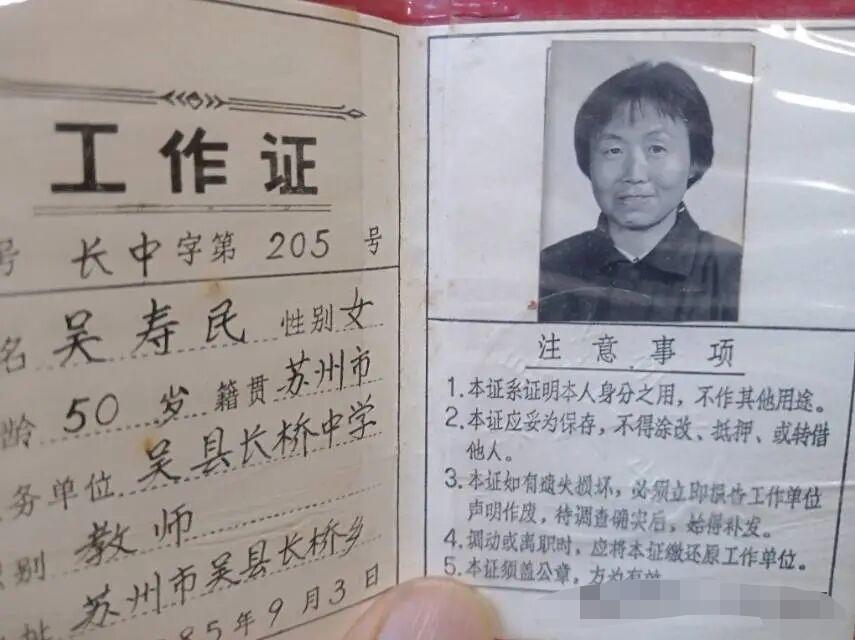 工作证
号 长中字第 205 号
名 吴寿民 性别 女
龄 50 岁 籍贯 苏州市
务单位 吴县长桥中学
别 教师
址 苏州市吴县长桥乡
85年9月3日
注意事项
1.本证系证明本人身分之用，不作其他用途。
2.本证应妥为保存，不得涂改、抵押、或转借
他人。
3.本证如有遗失损坏，必须立即报告工作单位
声明作废，待调查确实后，始得补发。
4.调动或离职时，应将本证缴还原工作单位。
5.本证须盖公章，方为有效